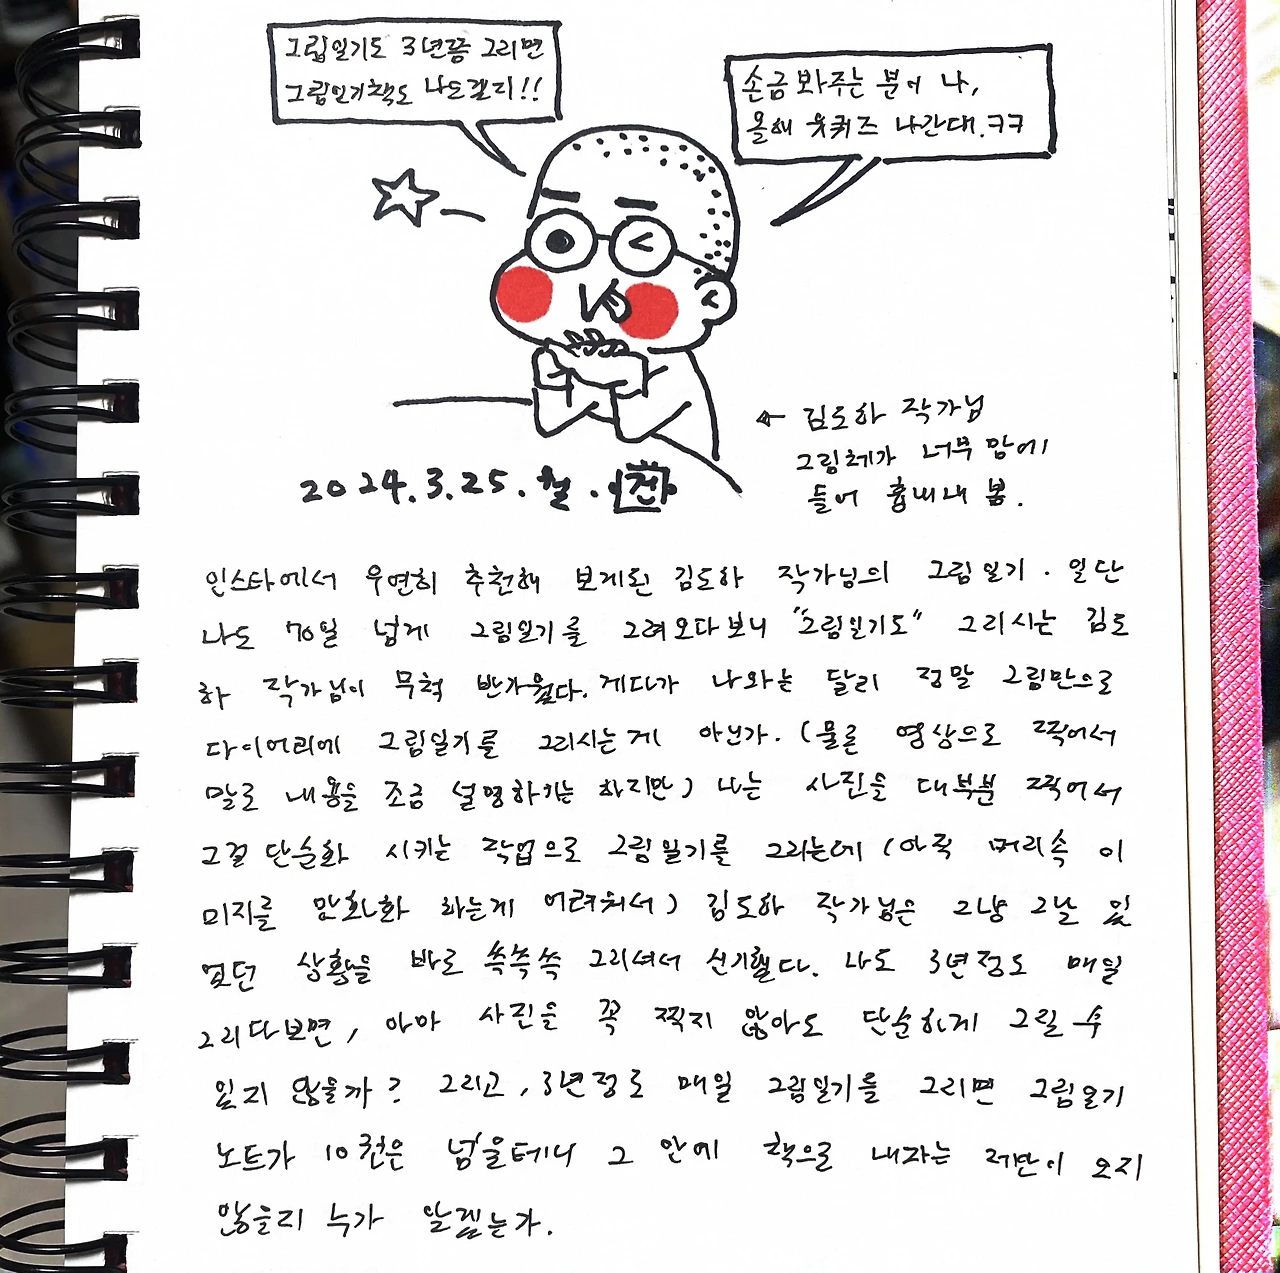 그림일기도 3년쯤 그리면
그림일기책도 나오겠지!!
손금 봐주는 분이 나,
올해 유퀴즈 나간대.ㅋㅋ
← 김도하 작가님
그림체가 너무 맘에
들어 흉내내 봄.
2024.3.25.월.건
인스타에서 우연히 추천해 보게된 김도하 작가님의 그림일기. 일단
나도 70일 넘게 그림일기를 그려오다보니 "그림일기도" 그리시는 김도
하 작가님이 무척 반가웠다. 게다가 나와는 달리 정말 그림만으로
다이어리에 그림일기를 그리시는게 아닌가. (물론 영상으로 찍어서
말로 내용을 조금 설명하기는 하지만) 나는 사진을 대부분 찍어서
그걸 단순화 시키는 작업으로 그림일기를 그리는데 (아직 머리속 이
미지를 만화화 하는게 어려워서) 김도하 작가님은 그냥 그날 있
었던 상황을 바로 쓱쓱쓱 그리셔서 신기했다. 나도 3년정도 매일
그리다보면, 아마 사진을 꼭 찍지 않아도 단순하게 그릴 수
있지 않을까? 그리고, 3년정도 매일 그림일기를 그리면 그림일기
노트가 10권은 넘을테니 그 안에 책으로 내자는 제안이 오지
않을리 누가 알겠는가.